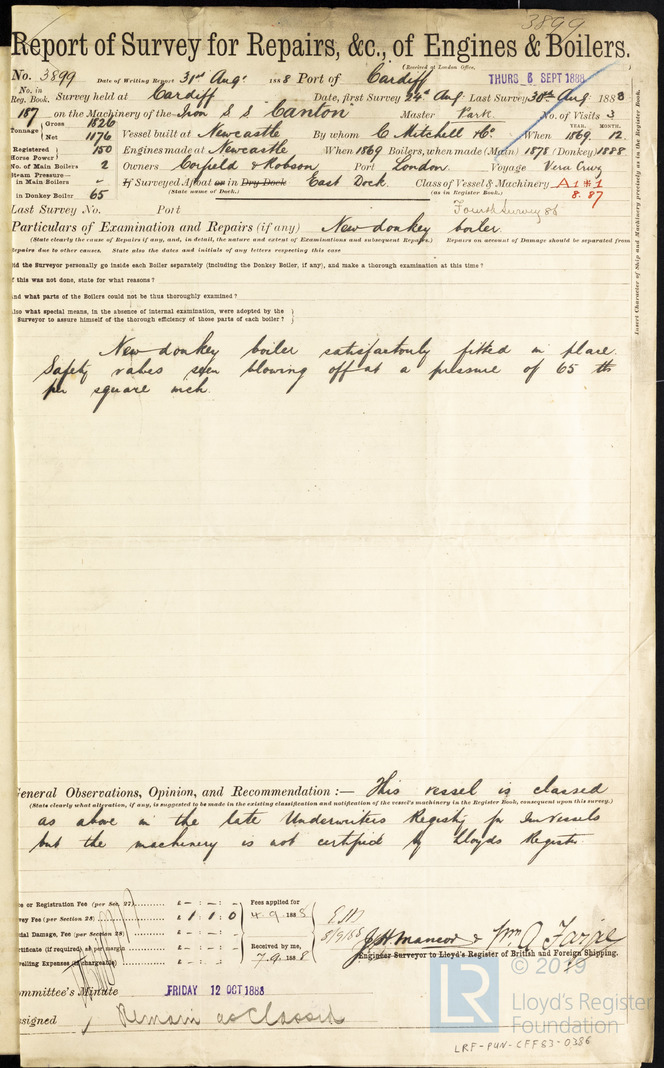 3899
Report of Survey for Repairs, &c., of Engines & Boilers.
(Received at London Office,
No. 3899 Date of Writing Report 31st Augt 1888 Port of Cardiff THURS 6 SEPT 1888
No. in Reg. Book. Survey held at Cardiff Date, first Survey 24th Aug Last Survey 30th Aug 1888
187 on the Machinery of the Iron S S "Canton" Master Park No. of Visits 3
Tonnage Gross 1826
Net 1176 Vessel built at Newcastle By whom C Mitchell & Co. When YEAR. 1869 MONTH. 12
Registered Horse Power 150 Engines made at Newcastle When 1869 Boilers, when made (Main) 1878 (Donkey) 1888
No. of Main Boilers 2 Owners Corfield & Robson Port London Voyage Vera Cruz
Steam Pressure— in Main Boilers - If Surveyed Afloat or in Dry Dock East Dock. Class of Vessel & Machinery A 1 * 1
in Donkey Boiler 65 (State name of Dock.) (as in Register Book.) 8. 87
Last Survey No. Port Fourth Survey 88
Particulars of Examination and Repairs (if any) New donkey boiler
(State clearly the cause of Repairs if any, and, in detail, the nature and extent of Examinations and subsequent Repairs.) Repairs on account of Damage should be separated from
Repairs due to other causes. State also the dates and initials of any letters respecting this case
Did the Surveyor personally go inside each Boiler separately (including the Donkey Boiler, if any), and make a thorough examination at this time?
If this was not done, state for what reasons?
And what parts of the Boilers could not be thus thoroughly examined?
Also what special means, in the absence of internal examination, were adopted by the
Surveyor to assure himself of the thorough efficiency of those parts of each boiler?
Insert Character of Ship and Machinery precisely as in the Register Book.
New donkey boiler satisfactorily fitted in place.
Safety valves seen blowing off at a pressure of 65 lbs
per square inch
General Observations, Opinion, and Recommendation :— This vessel is classed
(State clearly what alteration, if any, is suggested to be made in the existing classification and notification of the vessel's machinery in the Register Book, consequent upon this survey.)
as above in the late Underwriters Registry for Iron Vessels
but the machinery is not certified by Lloyds Register
or Registration Fee (per Sec. 27) £ - : - : - Fees applied for
Survey Fee (per Section 28) £ 1 : 1 : 0 4.9.1888
Special Damage, Fee (per Section 28) £ - : - : -
Certificate (if required) as per margin £ - : - : - Received by me,
Travelling Expenses (if chargeable) £ - : - : - 7.9.1888
5/9/88
J.H. Mancor &
Engineer Surveyor to Lloyd's Register of British and Foreign Shipping.
Committee's Minute FRIDAY 12 OCT 1888
Assigned Remain as Classed
© 2019
LR
Lloyd's Register
Foundation
LRF-PUN-CFF83-0386